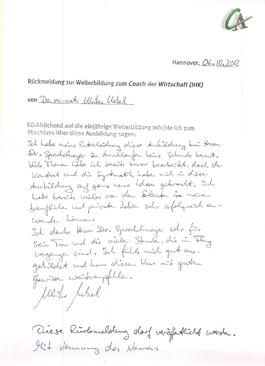 CA
Hannover, 06.10.2012
Rückmeldung zur Weiterbildung zum Coach der Wirtschaft (IHK)
von Dr. Ulrike Uebel
Rückblickend auf die einjährige Weiterbildung möchte ich zum
Abschluss über diese Ausbildung sagen:
Ich habe meine Entscheidung diese Ausbildung bei Herrn
Dr. zu durchlaufen keine Sekunde bereut.
Viele Themen habe ich bereits zuvor bearbeitet, doch die
Klarheit und die Systematik haben mich in dieser
Ausbildung auf ganz neue Ideen gebracht. Ich
habe bereits vieles von dem Erlernten in meinem
beruflichen und privaten Leben sehr erfolgreich an-
wenden können.
Ich danke Herrn Dr. sehr für
Sein Tun und die vielen Stunden, die im Flug
vergangen sind. Ich fühle mich gut aus-
gebildet und kann diesen Kurs mit guten
Gewissen weiterempfehlen.
Ulrike Uebel
Diese Rückmeldung darf veröffentlicht werden.
Mit Nennung des Namens